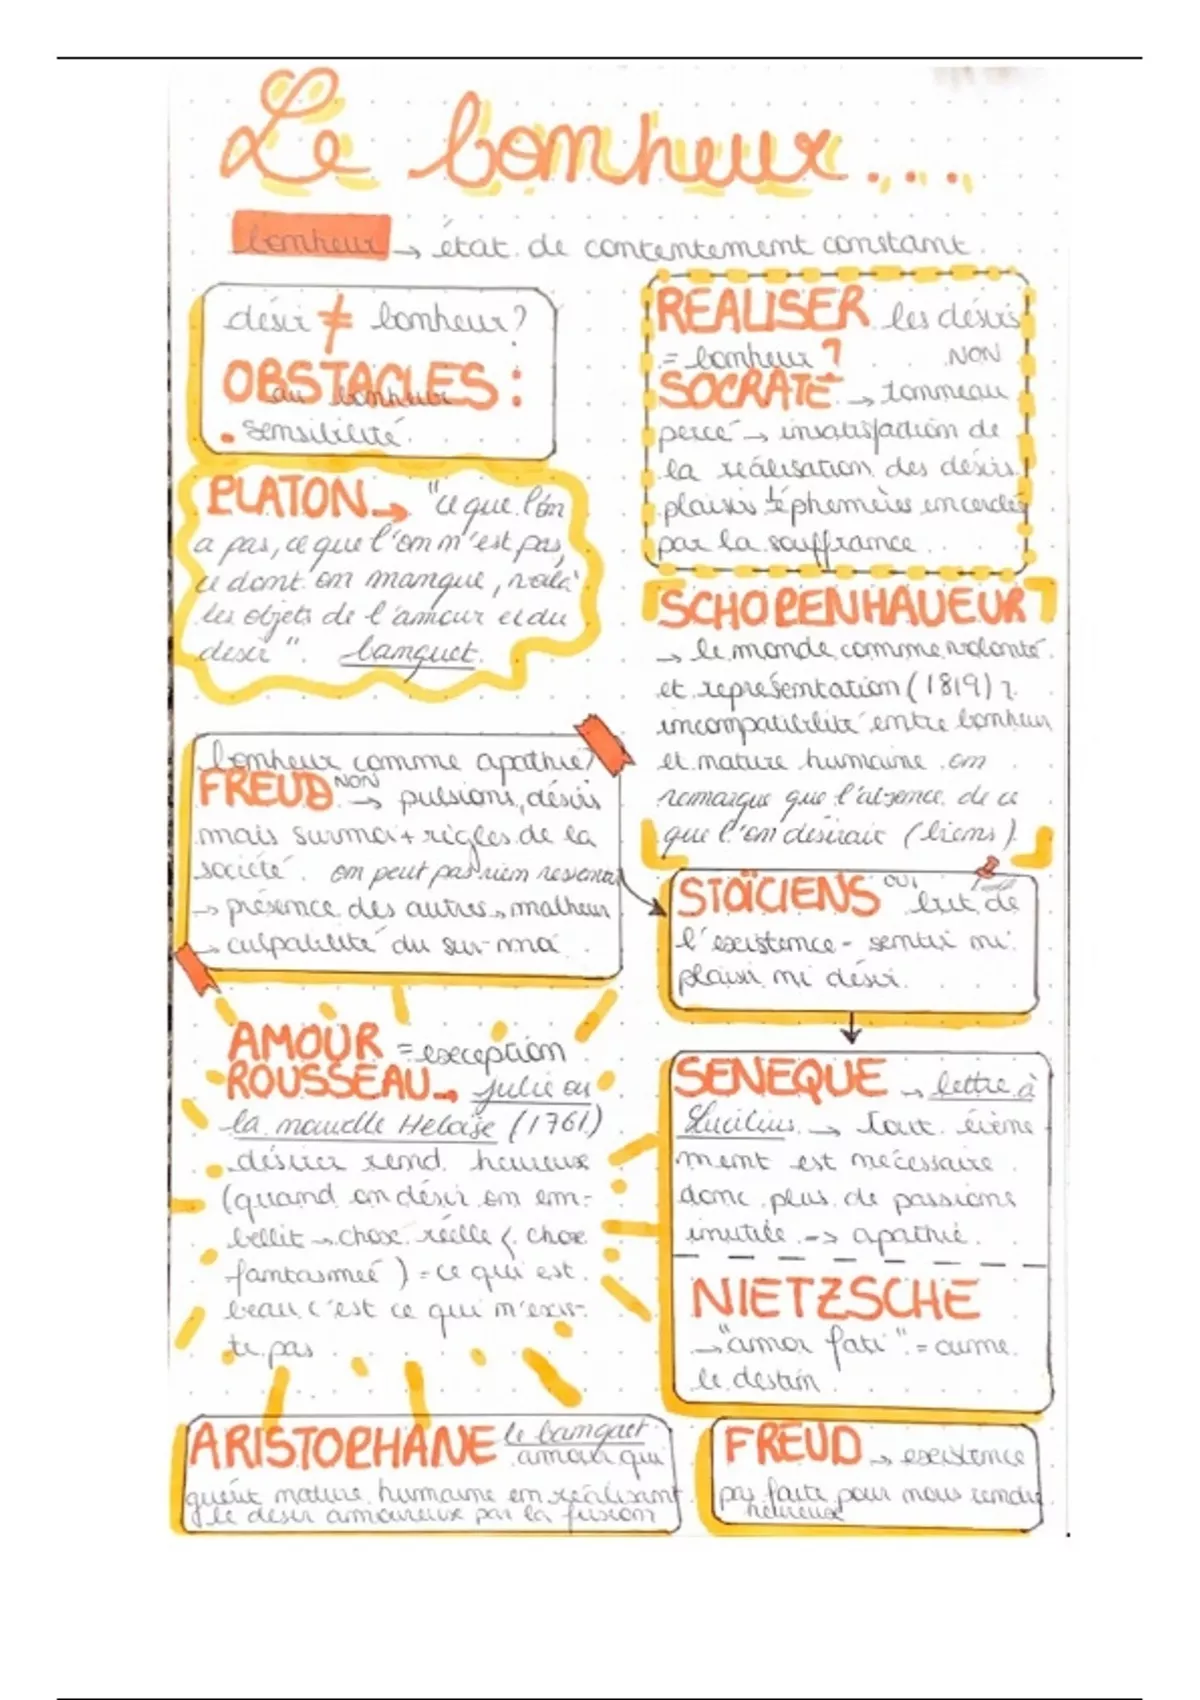 Le bonheur...
bonheur → état de contentement constant.
désir ≠ bonheur?
OBSTACLES :
au bonheur
• sensibilité.
PLATON → "ce que l'on
a pas, ce que l'on n'est pas,
ce dont on manque, voilà
les objets de l'amour et du
désir". banquet.
bonheur comme apathie?
FREUD NON → pulsions, désirs
mais surmoi + règles de la
société. on peut pas rien ressentir
→ présence des autres → malheur
→ culpabilité du sur-moi
AMOUR = exception
ROUSSEAU → julie ou
la nouvelle Heloïse (1761)
désirer rend heureux
(quand on désir on em-
bellit → chose réelle < chose
fantasmée) = ce qui est
beau c'est ce qui n'exis-
te pas
ARISTOPHANE le banquet
amour qui
guérit nature humaine en réalisant
le désir amoureux par la fusion
REALISER les désirs
= bonheur ? NON
SOCRATE → tonneau
percé → insatisfaction de
la réalisation des désirs
plaisirs éphémères encerclés
par la souffrance
SCHOPENHAUEUR
→ le monde comme volonté
et représentation (1819)
incompatibilité entre bonheur
et nature humaine. on
remarque que l'absence de ce
que l'on désirait (biens).
STOÏCIENS OUI but de
l'existence = sentir ni
plaisir ni désir.
SENEQUE → lettre à
Lucilius → tout évène
ment est nécessaire
donc plus de passions
inutile → apathie.
NIETZSCHE
→ "amor fati" = aime
le destin
FREUD → existence
pas faite pour nous rendre
heureux